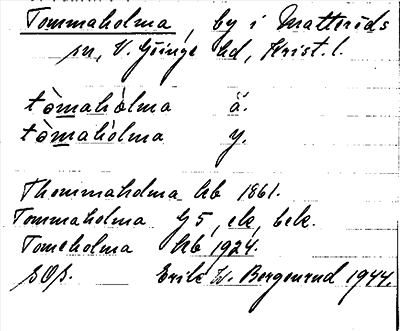 Tommaholma, by i Matteröds
sn, V. Göinge hd, Krist. l.
tòmahòlma ä.
tòmahòlma y.
Thommaholma kb 1861.
Tommaholma G5, ek, bek.
Tomeholma kb 1924.
sOs. Erik W. Bergenrud 1944.